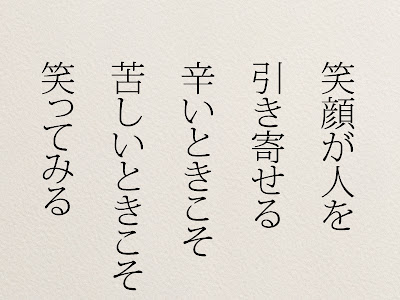 笑顔が人を
引き寄せる
辛いときこそ
苦しいときこそ
笑ってみる